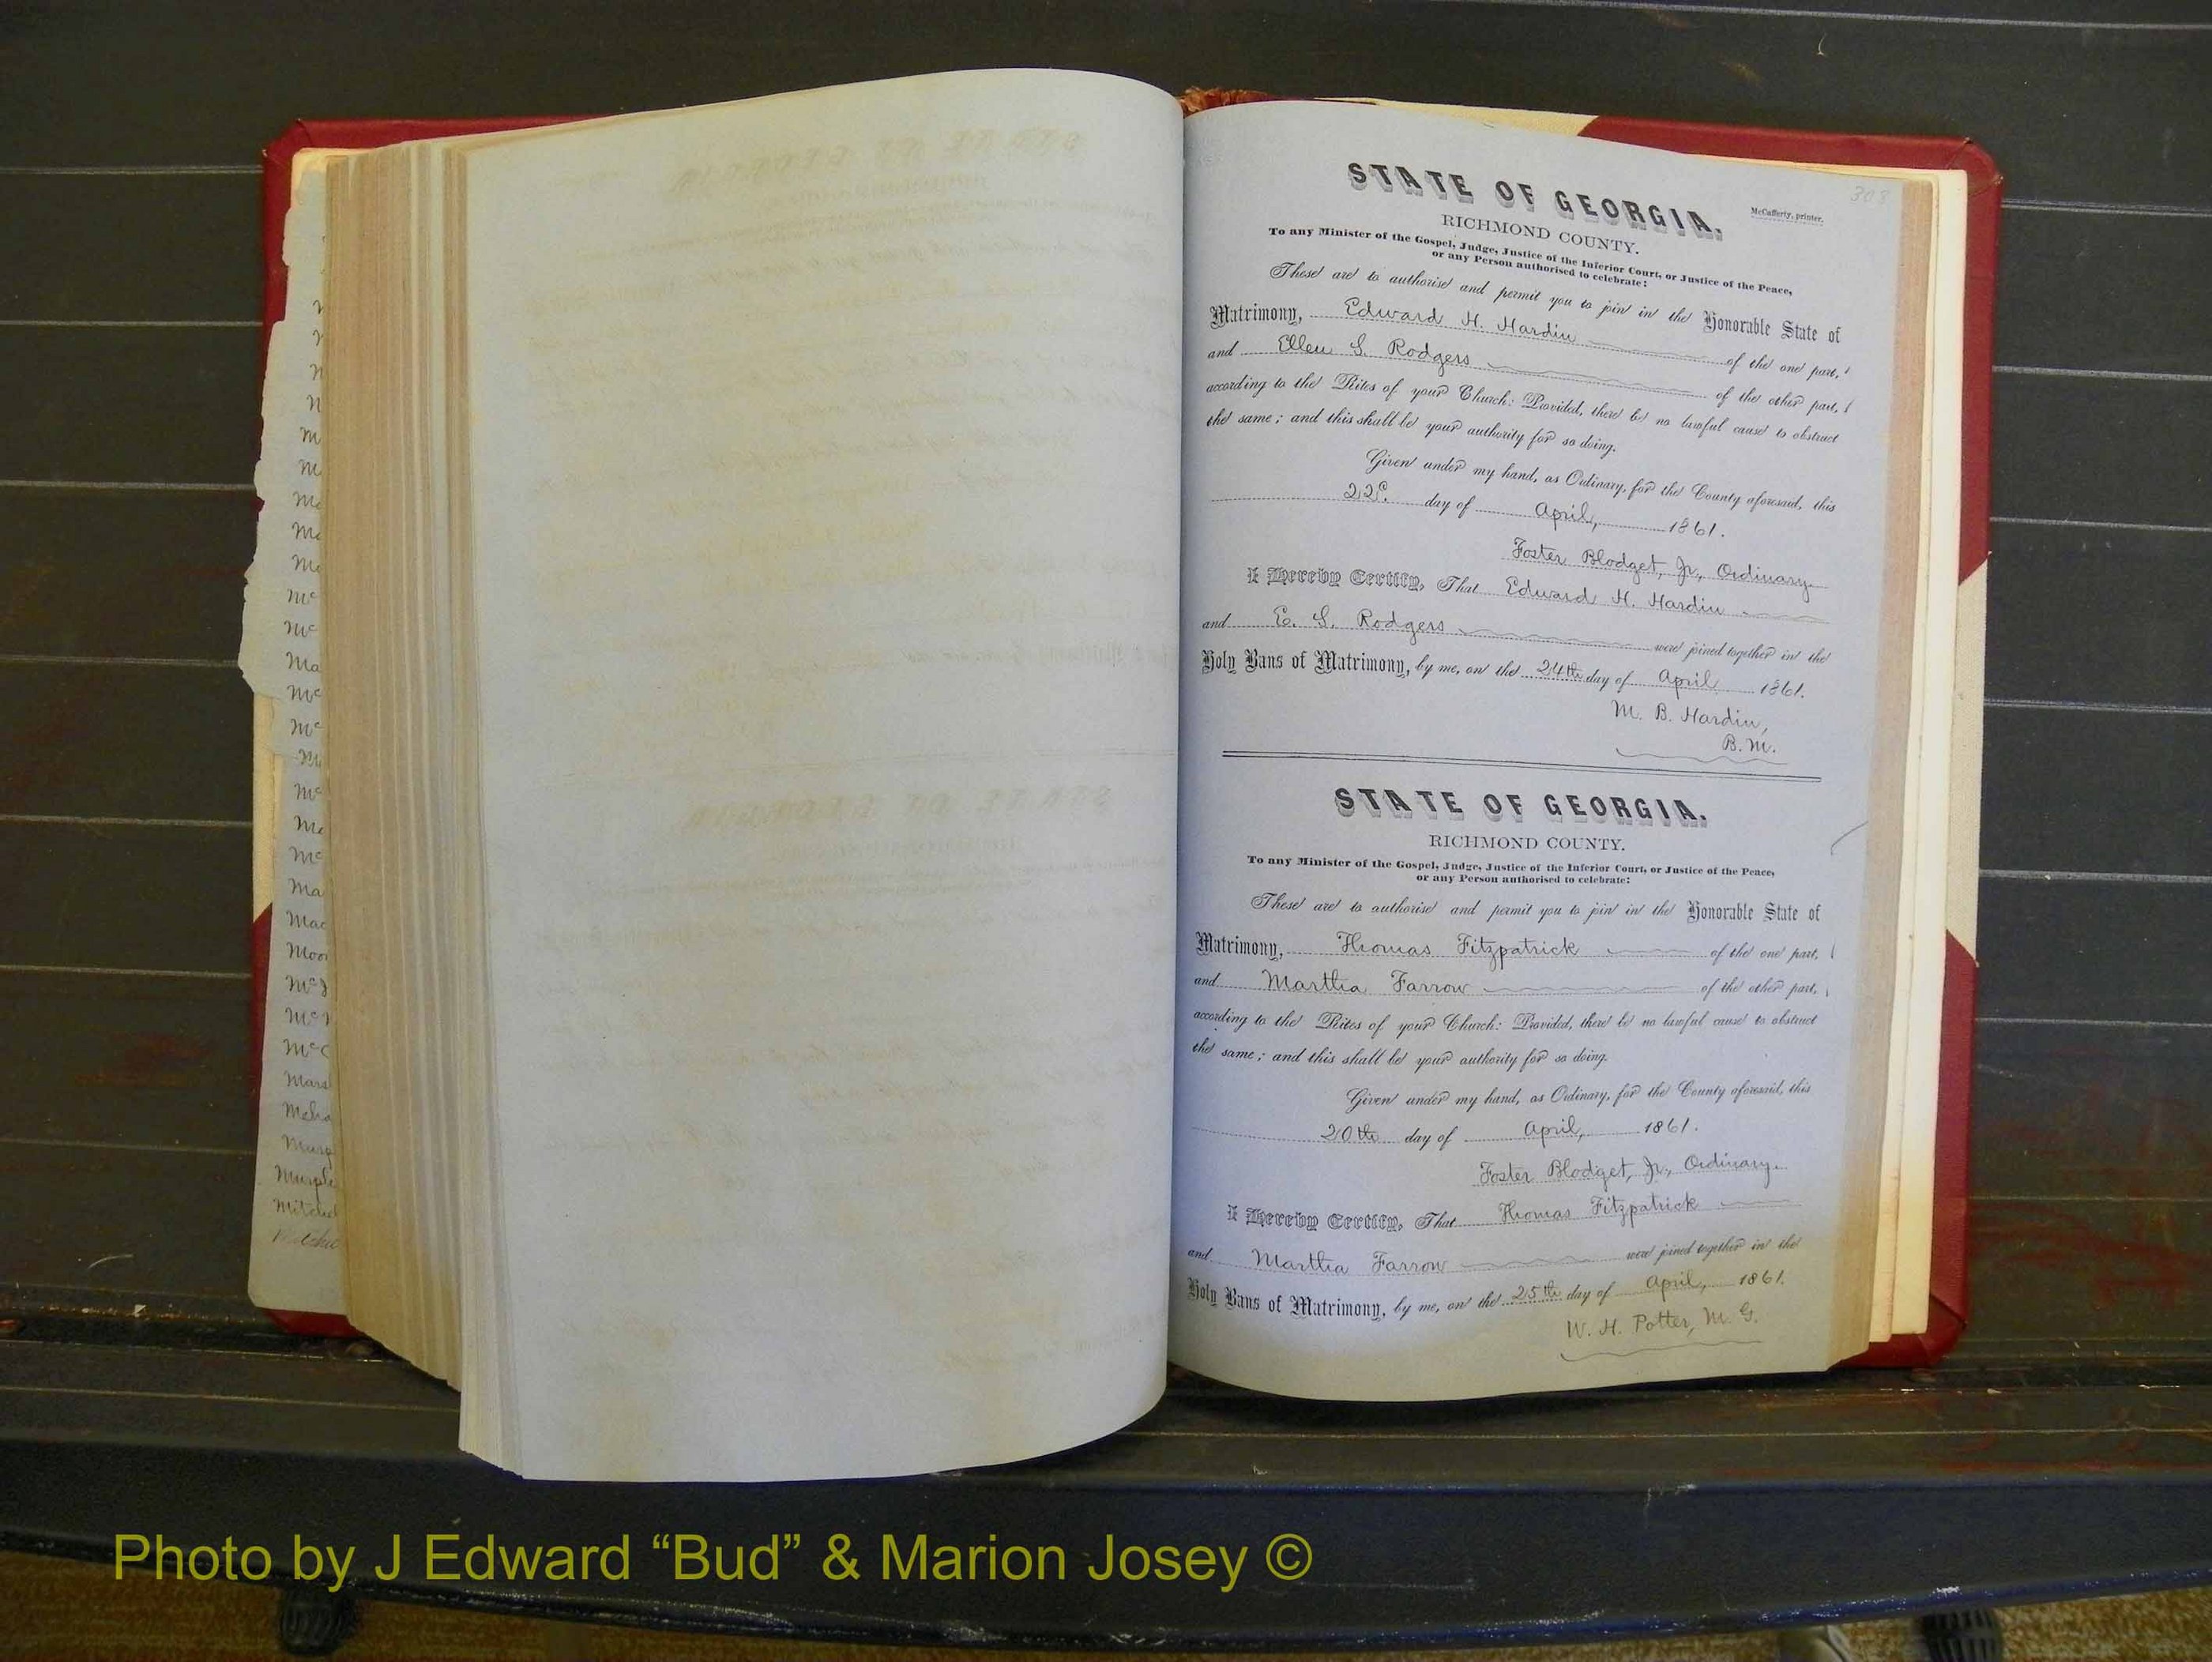 303
STATE OF GEORGIA.
McCafferty, printer.
RICHMOND COUNTY.
To any Minister of the Gospel, Judge, Justice of the Inferior Court, or Justice of the Peace,
or any Person authorised to celebrate:
These are to authorise and permit you to join in the Honorable State of
Matrimony, Edward H. Hardin of the one part,
and Ellen S. Rodgers of the other part,
according to the Rites of your Church: Provided, there be no lawful cause to obstruct
the same; and this shall be your authority for so doing.
Given under my hand, as Ordinary, for the County aforesaid, this
22d. day of April, 1861.
Foster Blodget, Jr., Ordinary.
I Hereby Certify, That Edward H. Hardin
and E. S. Rodgers were joined together in the
Holy Bans of Matrimony, by me, on the 24th day of April 1861.
M. B. Hardin,
B. M.
STATE OF GEORGIA.
RICHMOND COUNTY.
To any Minister of the Gospel, Judge, Justice of the Inferior Court, or Justice of the Peace,
or any Person authorised to celebrate:
These are to authorise and permit you to join in the Honorable State of
Matrimony, Thomas Fitzpatrick of the one part,
and Martha Farrow of the other part,
according to the Rites of your Church: Provided, there be no lawful cause to obstruct
the same; and this shall be your authority for so doing.
Given under my hand, as Ordinary, for the County aforesaid, this
20th day of April, 1861.
Foster Blodget, Jr., Ordinary.
I Hereby Certify, That Thomas Fitzpatrick
and Martha Farrow were joined together in the
Holy Bans of Matrimony, by me, on the 25th day of April, 1861.
W. H. Potter, M. G.
Photo by J Edward “Bud” & Marion Josey ©